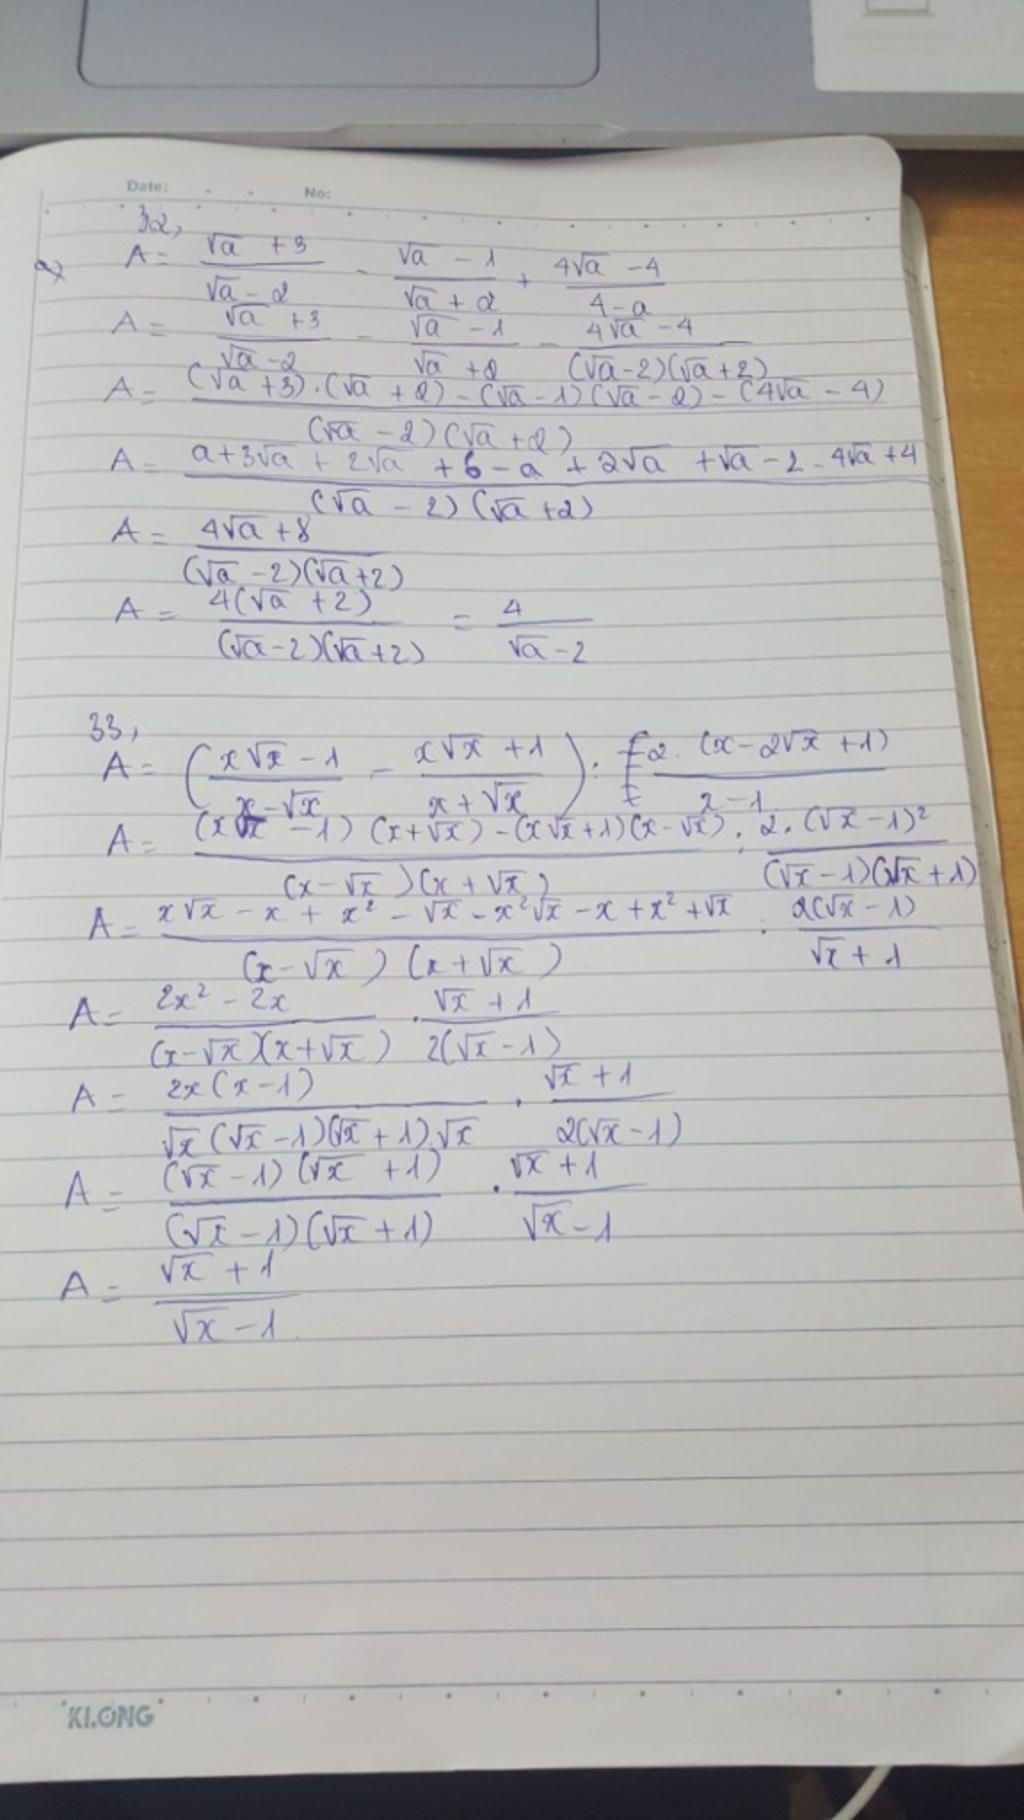 Date: No:
32,
a) A = (√a + 3)/(√a - 2) - (√a - 1)/(√a + 2) + (4√a - 4)/(4 - a)
A = (√a + 3)/(√a - 2) - (√a - 1)/(√a + 2) - (4√a - 4)/((√a - 2)(√a + 2))
A = ((√a + 3).(√a + 2) - (√a - 1)(√a - 2) - (4√a - 4))/((√a - 2)(√a + 2))
A = (a + 3√a + 2√a + 6 - a + 2√a + √a - 2 - 4√a + 4)/((√a - 2)(√a + 2))
A = (4√a + 8)/((√a - 2)(√a + 2))
A = (4(√a + 2))/((√a - 2)(√a + 2)) = 4/(√a - 2)
33,
A = ((x√x - 1)/(x - √x) - (x√x + 1)/(x + √x)) : (2.(x - 2√x + 1))/(x - 1)
A = ((x√x - 1)(x + √x) - (x√x + 1)(x - √x))/((x - √x)(x + √x)) : (2.(√x - 1)²)/((√x - 1)(√x + 1))
A = (x√x - x + x² - √x - x²√x - x + x² + √x)/((x - √x)(x + √x)) : (2(√x - 1))/(√x + 1)
A = (2x² - 2x)/((x - √x)(x + √x)) . (√x + 1)/(2(√x - 1))
A = (2x(x - 1))/(√x(√x - 1)(√x + 1).√x) . (√x + 1)/(2(√x - 1))
A = ((√x - 1)(√x + 1))/((√x - 1)(√x + 1)) . (√x + 1)/(√x - 1)
A = (√x + 1)/(√x - 1)
KLONG